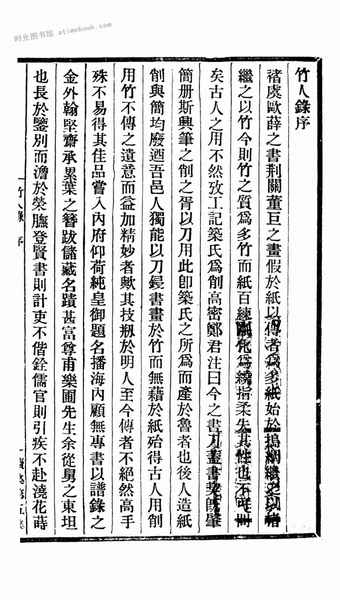 时光图书馆 atimebook.com
竹人錄序
褚虞歐薛之書荆關董巨之畫假於紙以傳者爲多紙始於搗網
繼之以竹今則竹之質爲多竹而紙百練化爲繞指柔失其性也不可
矣古人之用不然攷工記築氏爲削高密鄭君注曰今之書刀
簡册斯興筆之削之胥以刀用此卽築氏之所爲而產於魯者也後人造紙
削與簡均廢迺吾邑人獨能以刀鋟書畫於竹而無藉於紙殆得古人用削
用竹不傳之遺意而益加精妙者歟其技剏於明人至今傳者不絕然高手
殊不易得其佳品嘗入內府仰荷純皇御題名播海內顧無專書以譜錄之
金外翰堅齋承累葉之簪紱儲藏名蹟甚富尊甫樂圃先生余從舅之東坦
也長於鑒別而澹於榮膴登賢書則計吏不偕銓儒官則引疾不赴澆花蒔
竹人錄 序 一